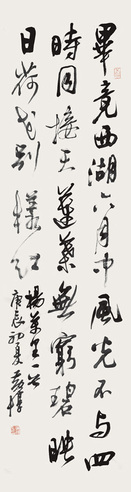 畢竟西湖六月中風光不与四
時同接天蓮葉無窮碧映
日荷花别樣紅
楊萬里一首
庚辰初夏